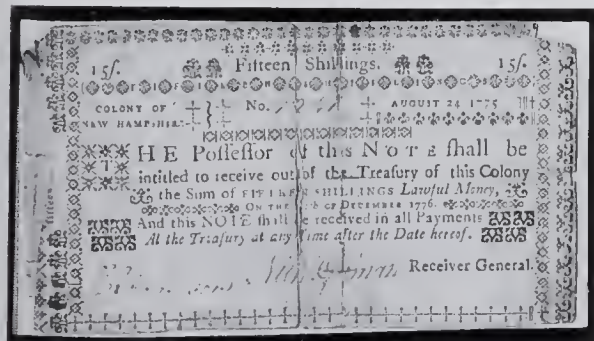 Fifteen Shillings.
15ſ. 15ſ.
COLONY OF NEW HAMPSHIRE. No. AUGUST 24 1775
THE Poſſeſſor of this NOTE ſhall be
intitled to receive out of the Treaſury of this Colony
the Sum of FIFTEEN SHILLINGS Lawful Money,
ON THE OF DECEMBER 1776.
And this NOTE ſhall be received in all Payments
At the Treaſury at any Time after the Date hereof.
Receiver General.